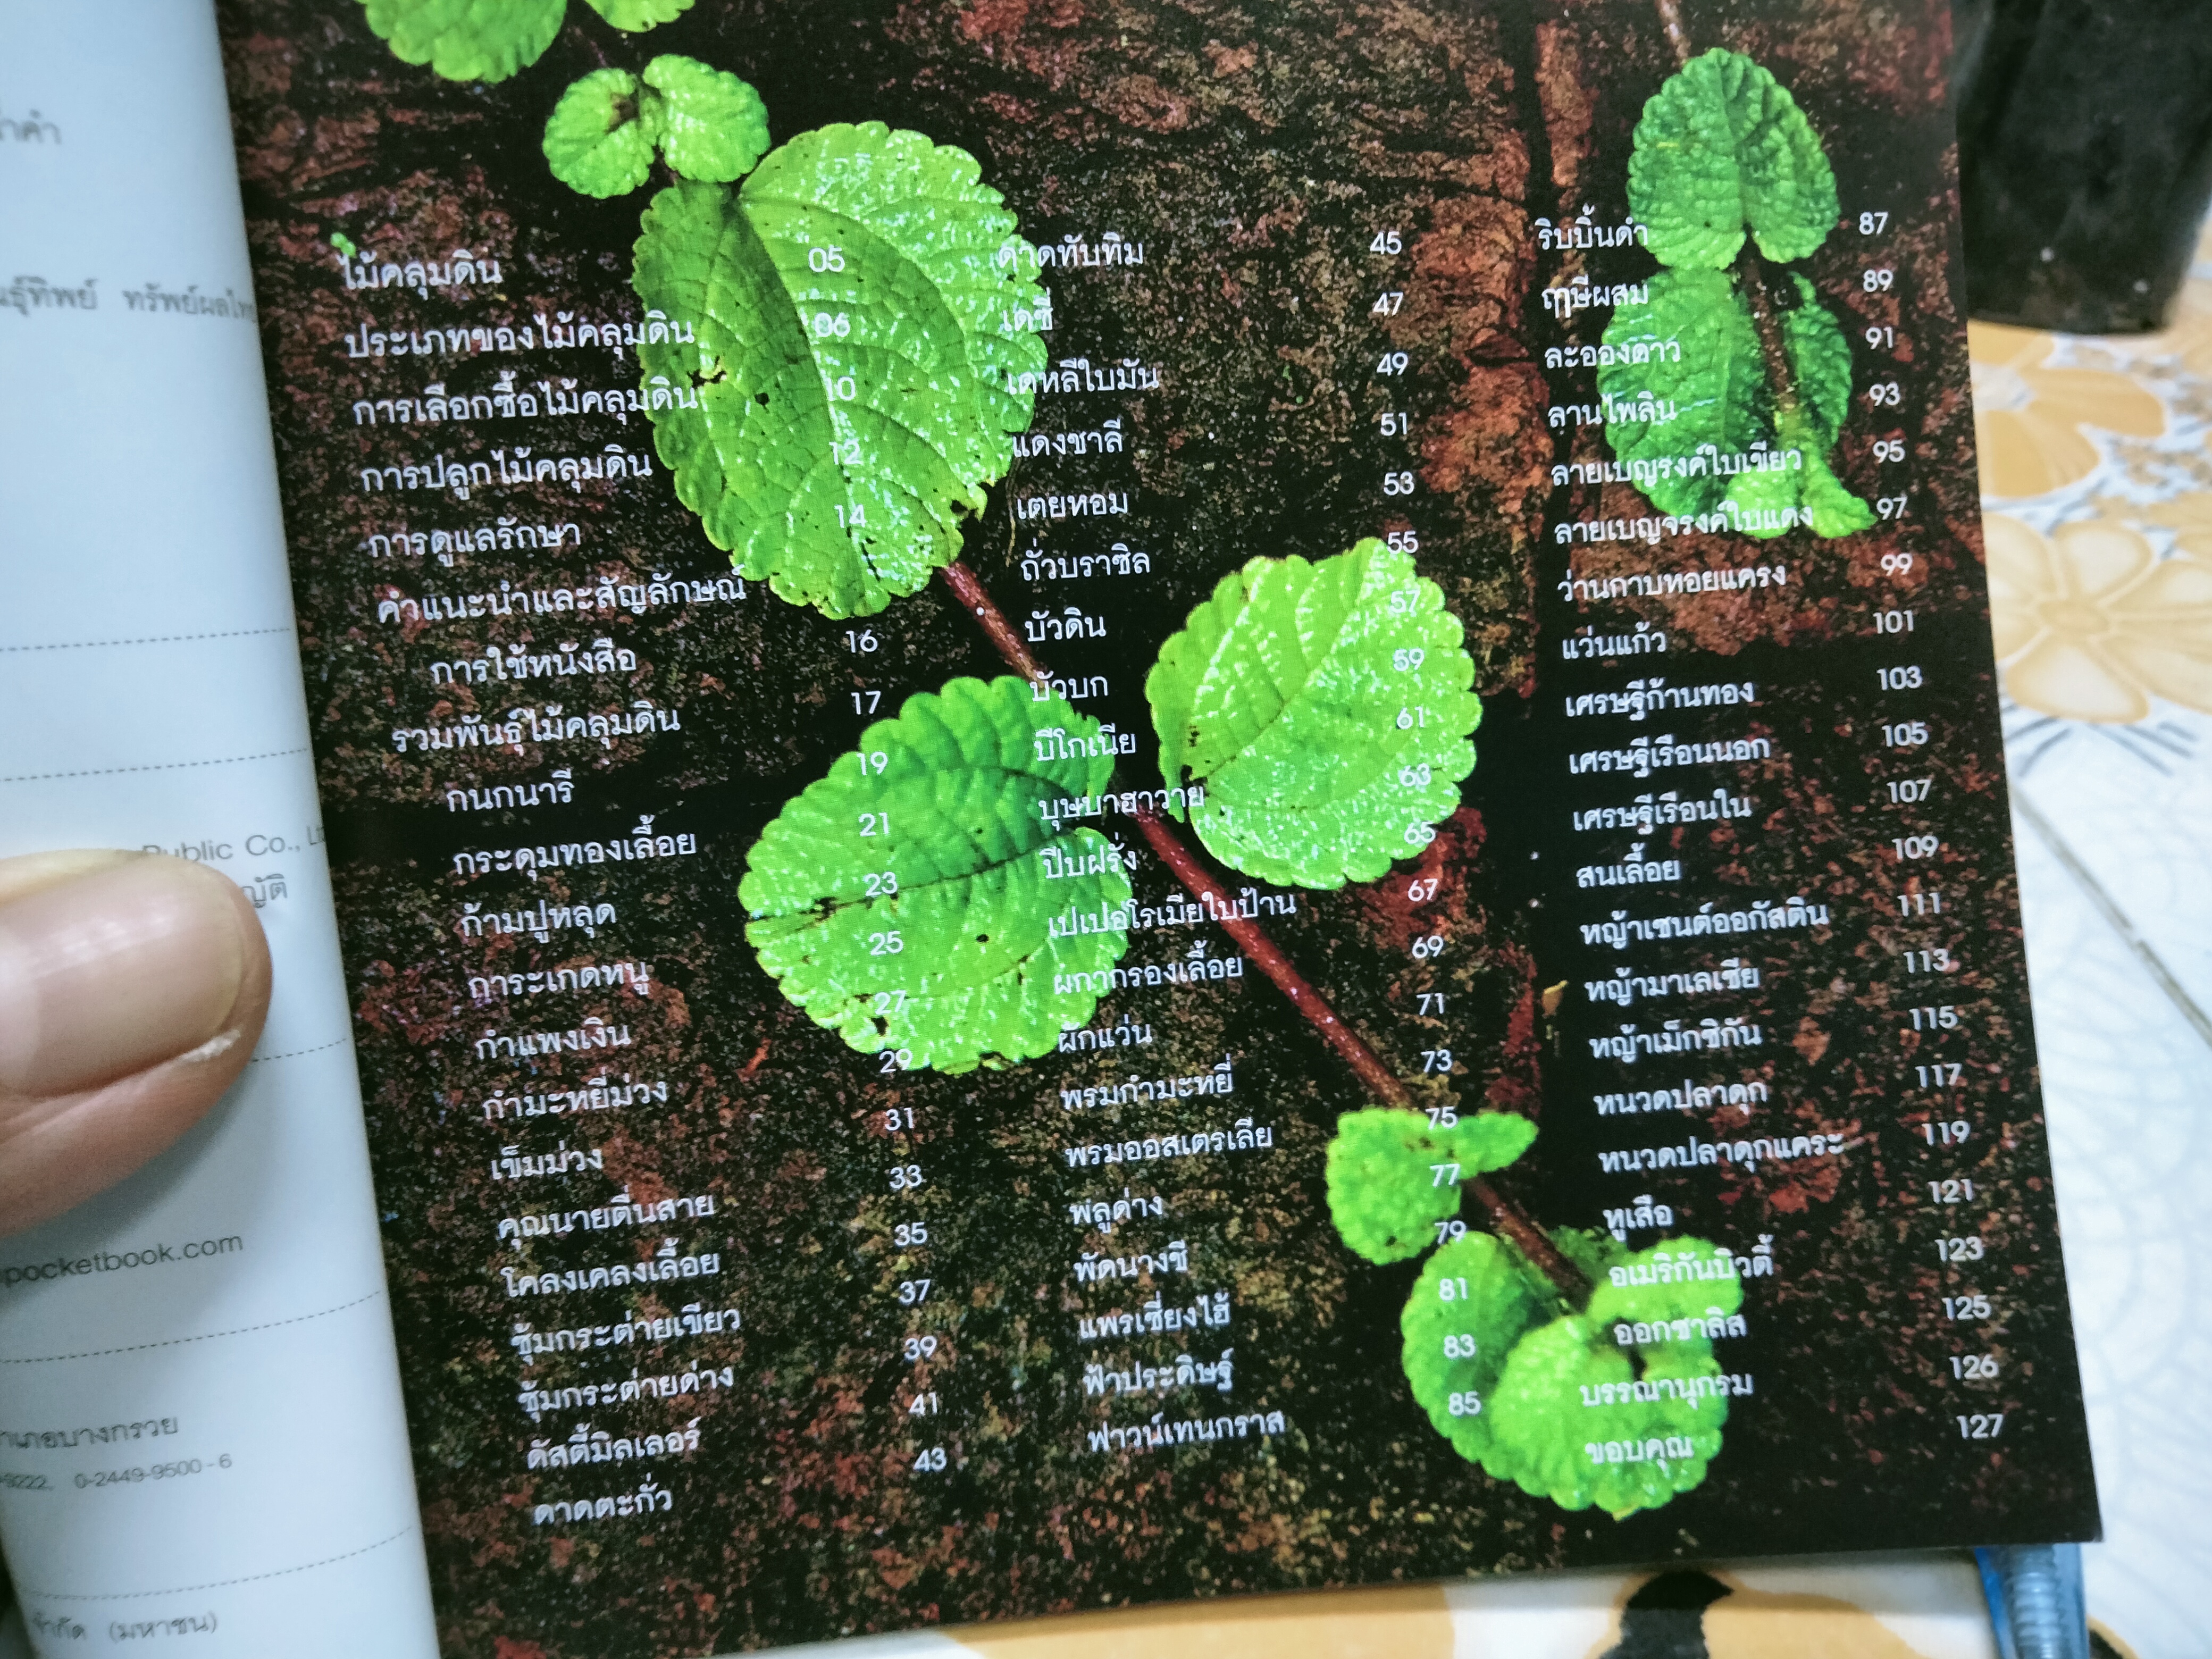 ทรัพย์ผลไทย
Public Co.,
pocketbook.com
บางกรวย
0-2449-9500-6
(มหาชน)
ไม้คลุมดิน 05
ประเภทของไม้คลุมดิน 06
การเลือกซื้อไม้คลุมดิน 10
การปลูกไม้คลุมดิน 12
การดูแลรักษา 14
คำแนะนำและสัญลักษณ์
การใช้หนังสือ 16
รวมพันธุ์ไม้คลุมดิน 17
กนกนารี 19
กระดุมทองเลื้อย 21
ก้ามปูหลุด 23
การะเกดหนู 25
กำแพงเงิน 27
กำมะหยี่ม่วง 29
เข็มม่วง 31
คุณนายตื่นสาย 33
โคลงเคลงเลื้อย 35
ซุ้มกระต่ายเขียว 37
ซุ้มกระต่ายด่าง 39
ดัสตี้มิลเลอร์ 41
ดาดตะกั่ว 43
ดาดทับทิม 45
เดซี่ 47
เดหลีใบมัน 49
แดงชาลี 51
เตยหอม 53
ถั่วบราซิล 55
บัวดิน 57
บัวบก 59
บีโกเนีย 61
บุษบาฮาวาย 63
ปีบฝรั่ง 65
เปเปอโรเมียใบป้าน 67
ผกากรองเลื้อย 69
ผักแว่น 71
พรมกำมะหยี่ 73
พรมออสเตรเลีย 75
พลูด่าง 77
พัดนางชี 79
แพรเซี่ยงไฮ้ 81
ฟ้าประดิษฐ์ 83
ฟาวน์เทนกราส 85
ริบบิ้นดำ 87
ฤๅษีผสม 89
ละอองดาว 91
ลานไพลิน 93
ลายเบญรงค์ใบเขียว 95
ลายเบญจรงค์ใบแดง 97
ว่านกาบหอยแครง 99
แว่นแก้ว 101
เศรษฐีก้านทอง 103
เศรษฐีเรือนนอก 105
เศรษฐีเรือนใน 107
สนเลื้อย 109
หญ้าเซนต์ออกัสติน 111
หญ้ามาเลเซีย 113
หญ้าเม็กซิกัน 115
หนวดปลาดุก 117
หนวดปลาดุกแคระ 119
หูเสือ 121
อเมริกันบิวตี้ 123
ออกซาลิส 125
บรรณานุกรม 126
ขอบคุณ 127